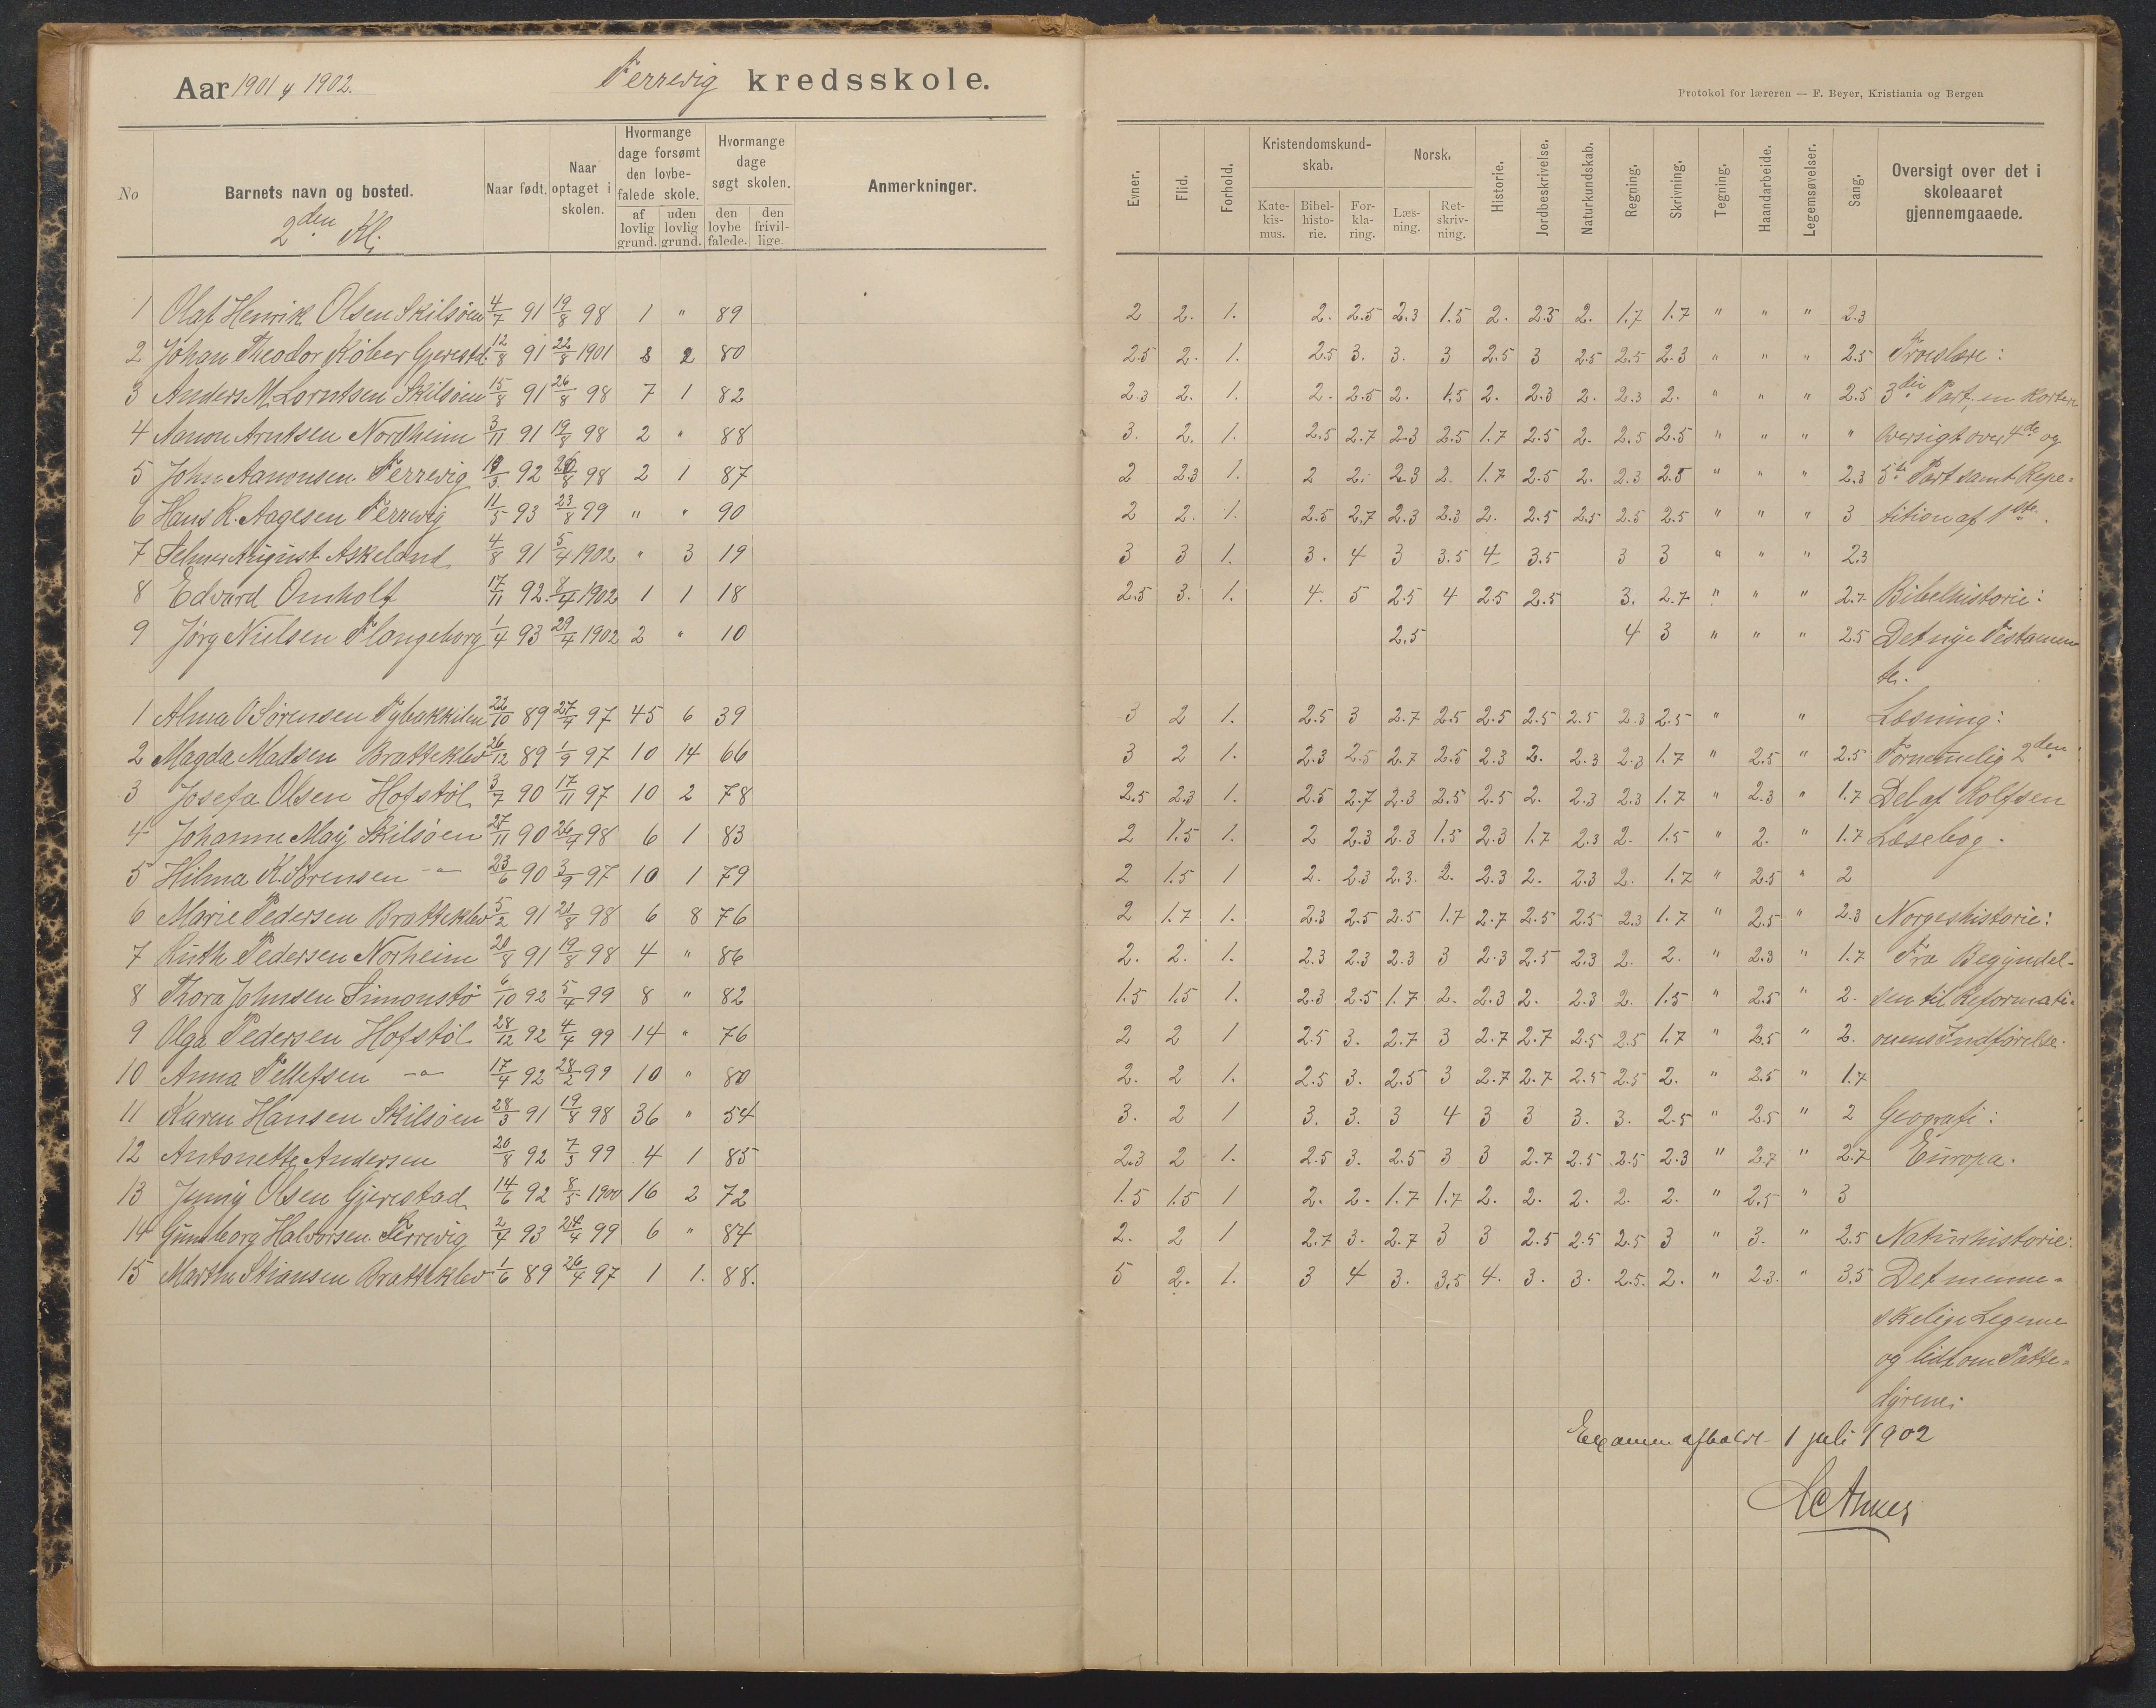 Aar 1901 & 1902. Terrevig kredsskole.
No Barnets navn og bosted. Naar født. Naar optaget i skolen. Hvormange dage forsømt den lovbefalede skole. af lovlig grund. uden lovlig grund. Hvormange dage søgt skolen. den lovbefalede. den frivillige. Anmerkninger.
2den Kl.
1 Olaf Henrik Olsen Skilsøen 4/7 91 19/8 98 1 " 89
2 Johan Theodor Køber Gjerestd. 12/8 91 22/8 1901 8 2 80
3 Anders M. Lorntsen Skilsøen 15/8 91 26/8 98 7 1 82
4 Aanon Arntsen Nordheim 3/11 91 19/8 98 2 " 88
5 John Aanonsen Terrevig 19/3 92 26/8 98 2 1 87
6 Hans R. Aagesen Terrevig 11/5 93 23/8 99 " " 90
7 Telmer August Askeland 4/8 91 5/4 1902 " 3 19
8 Edvard Omholt 17/11 92. 8/4 1902 1 1 18
9 Jørg Nielsen Flangeborg 1/4 93 29/4 1902 2 " 10
1 Alma O Sørensen Tybakkilen 22/10 89 27/4 97 45 6 39
2 Magda Madsen Bratteklev 26/12 89 1/9 97 10 14 66
3 Josefa Olsen Hofstøl 3/7 90 17/11 97 10 2 78
4 Johanne May Skilsøen 27/11 90 26/4 98 6 1 83
5 Hilma K. Sørensen -"- 23/6 90 3/9 97 10 1 79
6 Marie Pedersen Bratteklev 5/2 91 21/8 98 6 8 76
7 Ruth Pedersen Norheim 20/8 91 19/8 98 4 " 86
8 Thora Johnsen Simonstø 6/10 92 5/4 99 8 " 82
9 Olga Pedersen Hofstøl 28/12 92 4/4 99 14 " 76
10 Anna Tellefsen -"- 17/4 92 28/2 99 10 " 80
11 Karen Hansen Skilsøen 28/3 91 19/8 98 36 " 54
12 Antonette Andersen 20/8 92 7/3 99 4 1 85
13 Jenny Olsen Gjerestad 14/6 92 8/5 1900 16 2 72
14 Gunborg Halvorsen Terrevig 2/4 93 24/4 99 6 " 84
15 Marthe Stiansen Bratteklev 1/6 89 26/4 97 1 1. 88.
Protokol for læreren — F. Beyer, Kristiania og Bergen
Evner. Flid. Forhold. Kristendomskundskab. Katekismus. Bibelhistorie. Forklaring. Norsk. Læsning. Retskrivning. Historie. Jordbeskrivelse. Naturkundskab. Regning. Skrivning. Tegning. Haandarbeide. Legemsøvelser. Sang. Oversigt over det i skoleaaret gjennemgaaede.
2 2. 1. 2. 2.5 2.3 1.5 2. 2.3 2. 1.7 1.7 " " " 2.3
2.5 2. 1. 2.5 3. 3. 3 2.5 3 2.5 2.5 2.3 " " " 2.5 Troeslære:
2.3 2. 1. 2. 2.5 2. 1.5 2. 2.3 2. 2.3 2. " " " 2.5 3die Part, en kortere
3. 2. 1. 2.5 2.7 2.3 2.5 1.7 2.5 2. 2.5 2.5 " " " " Oversigt over 4de og
2 2.3 1. 2 2. 2.3 2. 1.7 2.5 2. 2.3 2.5 " " " 2.3 5te Part samt Repe-
2 2. 1. 2.5 2.7 2.3 2.3 2. 2.5 2.5 2.5 2.5 " " " 3 tition af 1ste.
3 3 1. 3. 4 3 3.5 4 3.5 3 3 " " " 2.3
2.5 3. 1. 4. 5 2.5 4 2.5 2.5 3. 2.7 " " " 2.7 Bibelhistorie:
2.5 4 3 " " " 2.5 Det nye Testamen
te.
3 2 1. 2.5 3 2.7 2.5 2.5 2.5 2.5 2.3 2.5 " " Læsning:
3 2 1. 2.3 2.5 2.7 2.5 2.3 2. 2.3 2.3 1.7 " 2.5 " 2.5 Fornemelig 2den
2.5 2.3 1. 2.5 2.7 2.3 2.5 2.5 2. 2.3 2.3 1.7 " 2.3 " 1.7 Del af Rolfsen
2 1.5 1. 2 2.3 2.3 1.5 2.3 1.7 2.3 2. 1.5 " 2. " 1.7 Læsebog.
2 1.5 1 2. 2.3 2.3. 2. 2.3 2. 2.3 2. 1.7 " 2.5 " 2
2 1.7 1. 2.3 2.5 2.5 1.7 2.7 2.5 2.5 2.3 1.7 " 2.5 " 2.3 Norgeshistorie:
2. 2. 1. 2.3 2.3 2.3 3 2.3 2.5 2.3 2. 2. " 2.3 " 1.7 Fra Begyndel-
1.5 1.5 1. 2.3 2.5 1.7 2. 2.3 2. 2.3 2. 1.5 " 2.5 " 2. sen til Reformati-
2 2 1 2.5 3. 2.7 3 2.7 2.7 2.5 2.5 1.7 " 2.5 " 2. onens Indførelse.
2. 2 1. 2.5 3. 2.5 3 2.7 2.7 2.5 2.5 2. " 2.5 " 1.7
3. 2 1 3. 3. 3 4 3 3 3. 3. 2.5 " 2.5 " 2 Geografi:
2.3 2 1. 2.5 3. 2.5 3 3 2.7 2.5 2.5 2.3 " 2.7 " 2.7 Europa.
1.5 1.5 1 2. 2. 1.7 1.7 2. 2. 2. 2. 2. " 2.5 " 3
2. 2 1 2.7 3. 2.7 3 3 2.5 2.5 2.5 3 " 3. " 2.5 Naturhistorie:
5 2. 1. 3 4 3. 3.5 4. 3. 3. 2.5. 2. " 2.3. " 3.5 Det menne-
skelige Legeme
og lidt om Patte-
dyrene.
Examen afholdt 1 juli 1902